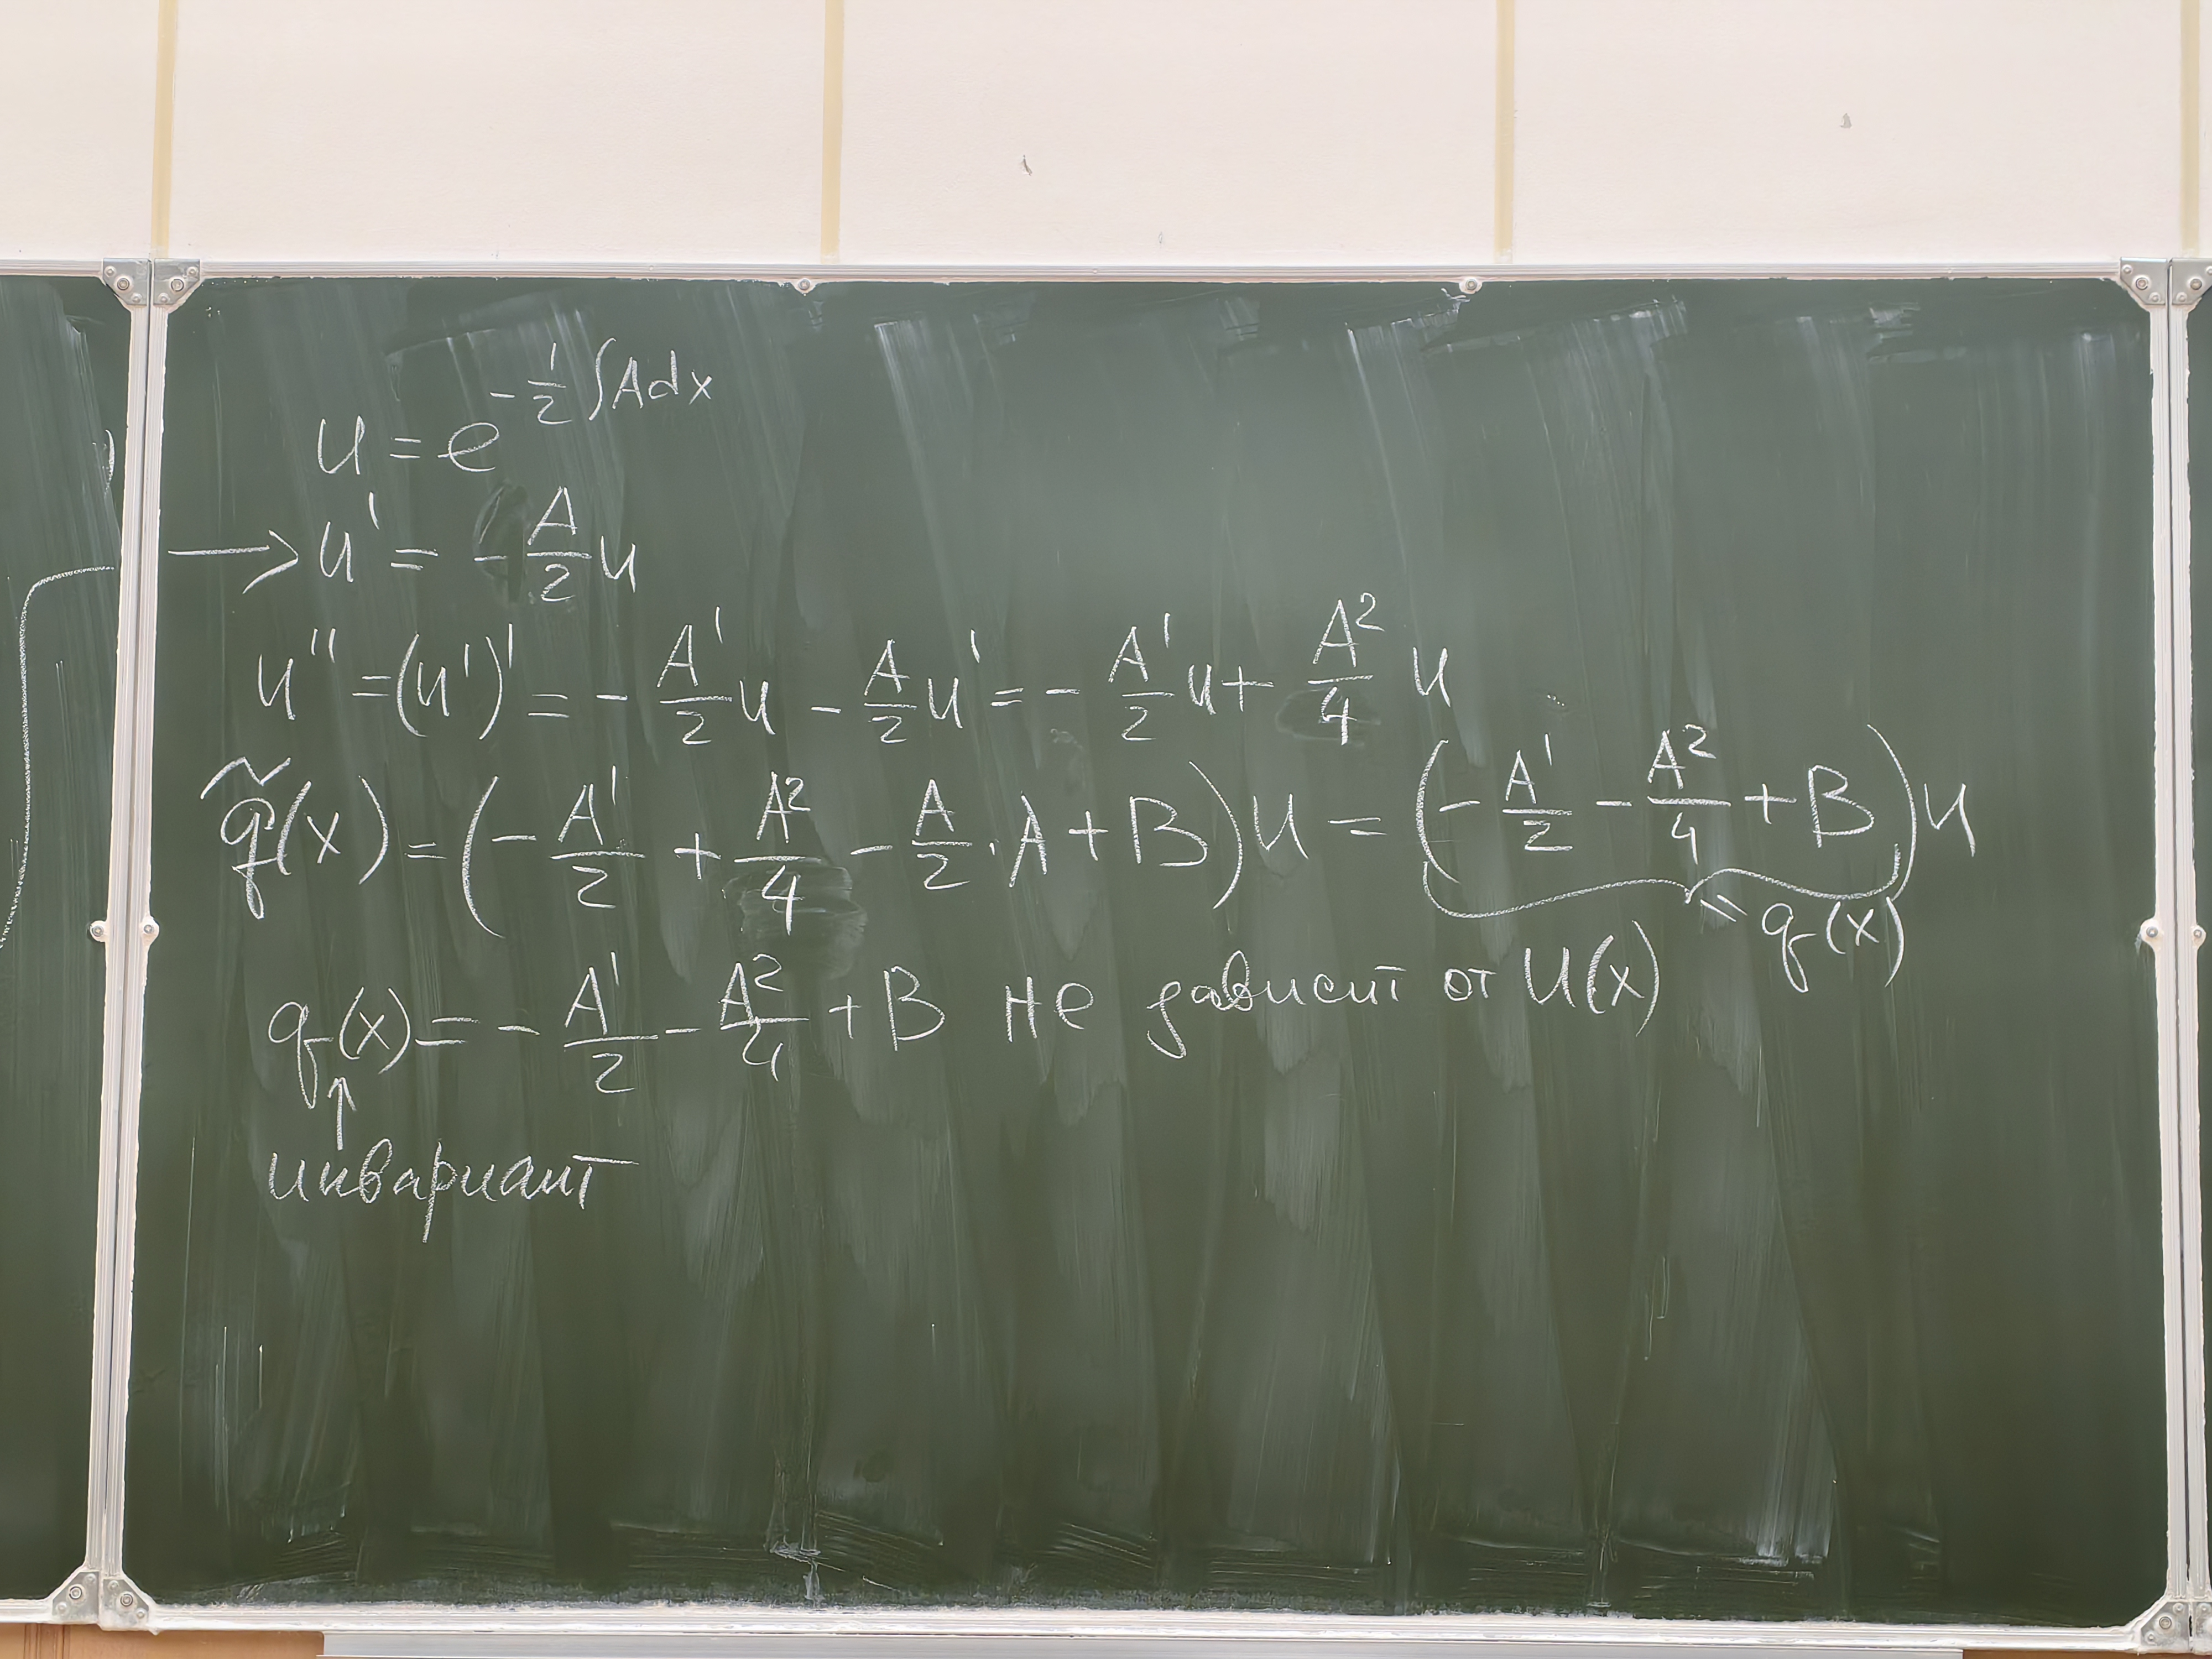 u = e^{-\frac{1}{2}∫Adx}
→ u' = -\frac{A}{2}u
u'' = (u')' = -\frac{A'}{2}u - \frac{A}{2}u' = -\frac{A'}{2}u + \frac{A^2}{4}u
\tilde{q}(x) = (-\frac{A'}{2} + \frac{A^2}{4} - \frac{A}{2}·A + B)u = (-\frac{A'}{2} - \frac{A^2}{4} + B)u
= q(x)
q(x) = -\frac{A'}{2} - \frac{A^2}{4} + B не зависит от u(x)
↑
инвариант